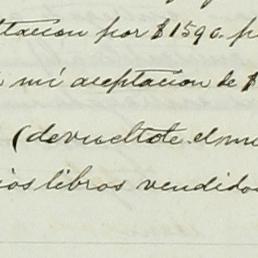 tacion por $1590. p
mi aceptacion de $
(devueltote el mi
ios libros vendidos